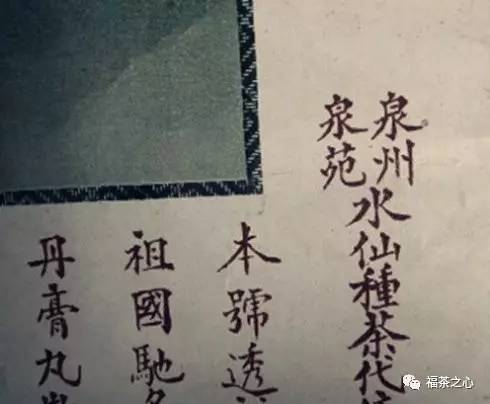 泉州
泉苑
水仙種茶代
本號透
祖國馳
丹膏丸
福茶之心